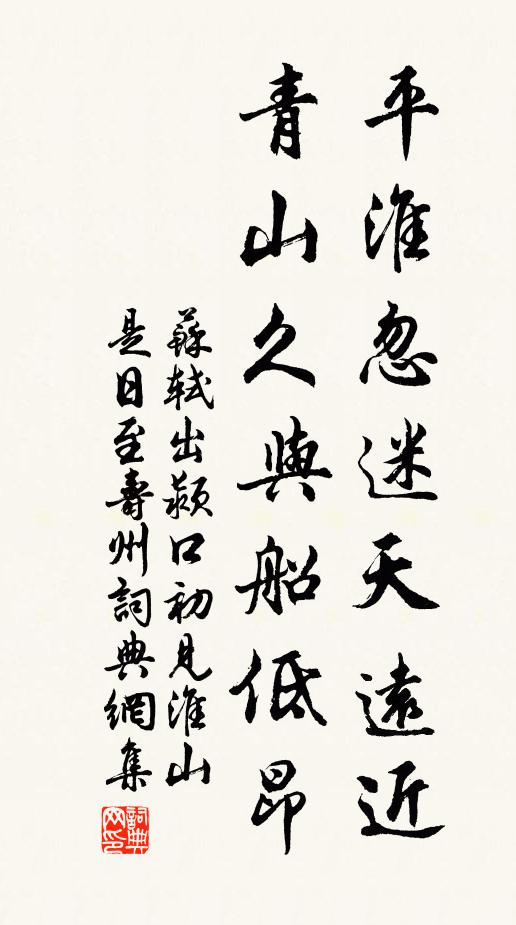 平淮忽迷天遠近
青山久與船低昂
蘇軾出潁口初見淮山
是日至壽州詞典網集
詞典网印